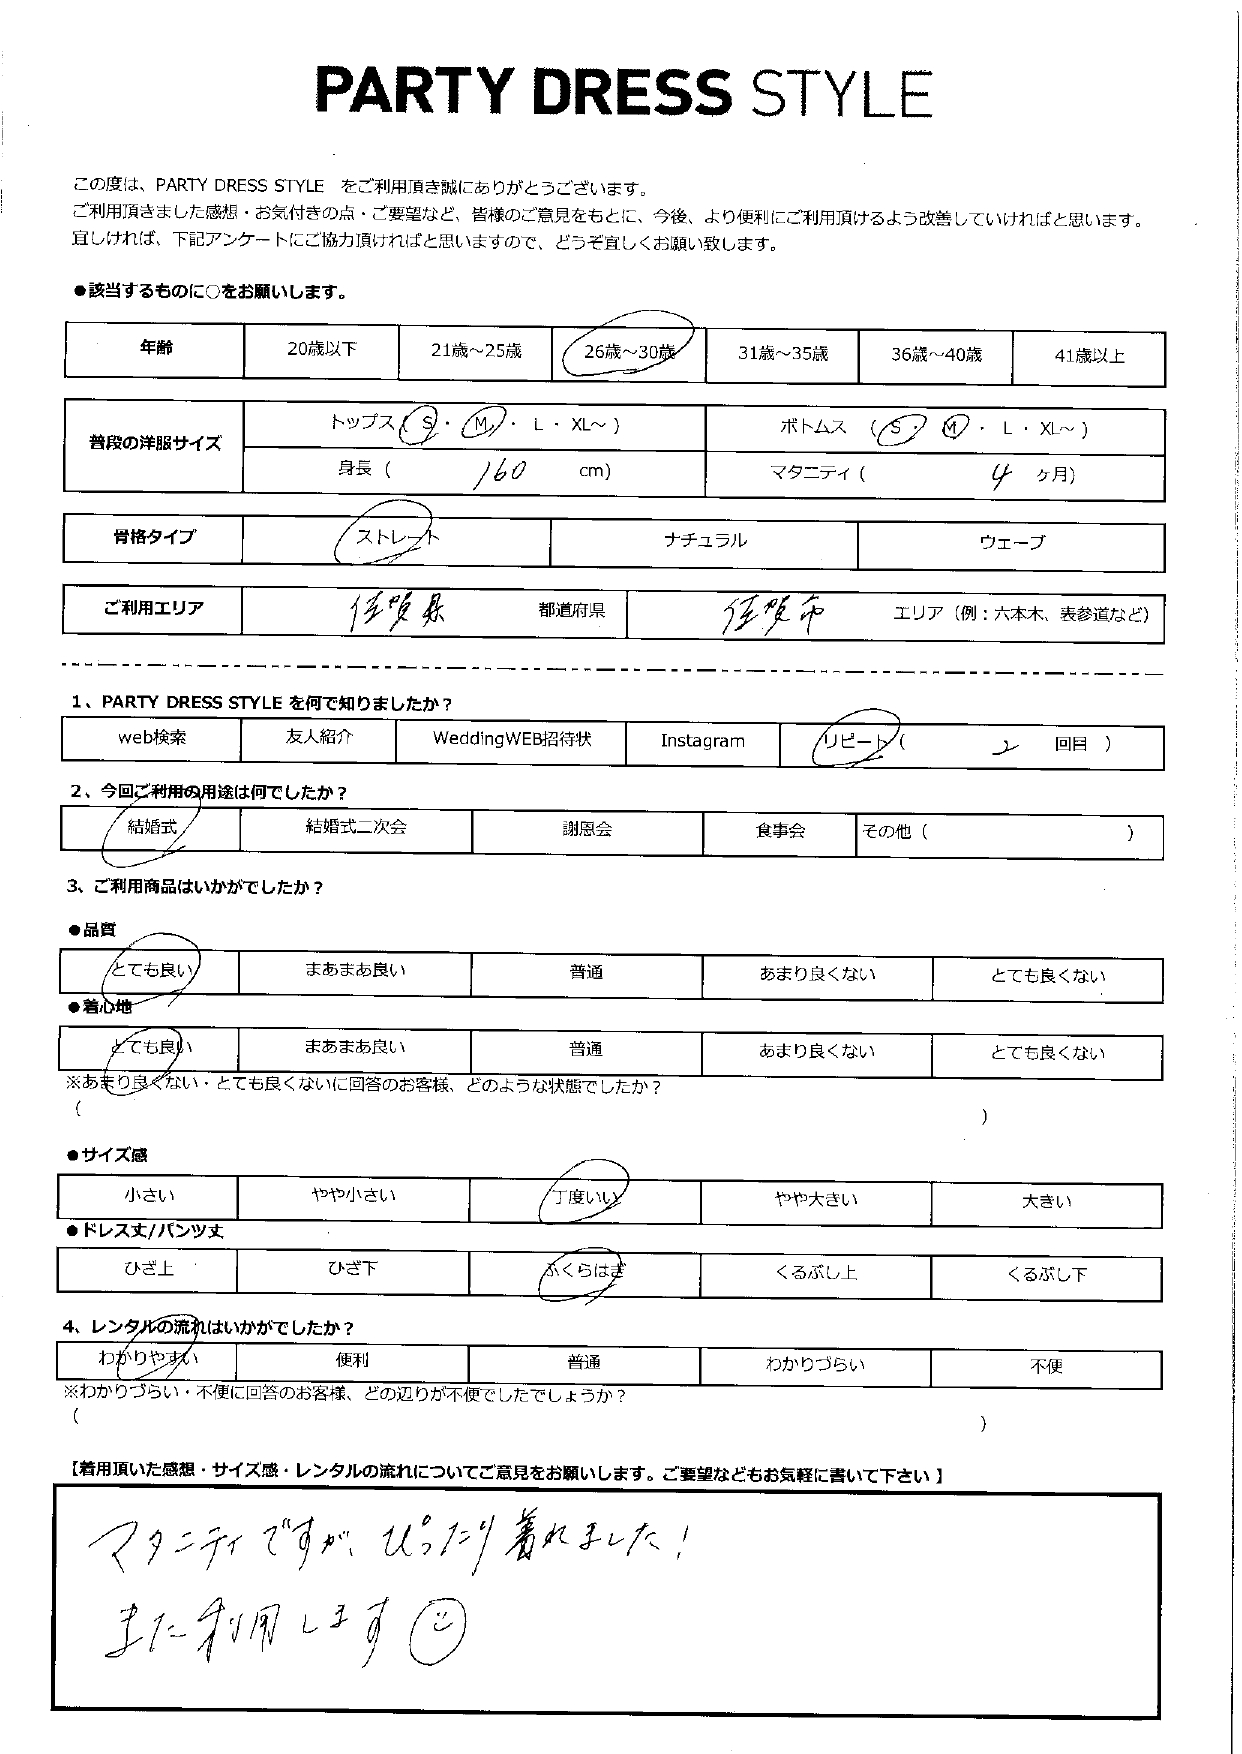 PARTY DRESS STYLE
この度は、PARTY DRESS STYLE をご利用頂き誠にありがとうございます。
ご利用頂きました感想・お気付きの点・ご要望など、皆様のご意見をもとに、今後、より便利にご利用頂けるよう改善していければと思います。
宜しければ、下記アンケートにご協力頂ければと思いますので、どうぞ宜しくお願い致します。
●該当するものに○をお願いします。
年齢 20歳以下 21歳～25歳 26歳～30歳 31歳～35歳 36歳～40歳 41歳以上
普段の洋服サイズ トップス ( S ・ M ・ L ・ XL～ ) ボトムス ( S ・ M ・ L ・ XL～ )
身長 ( 160 cm) マタニティ ( 4 ヶ月)
骨格タイプ ストレート ナチュラル ウェーブ
ご利用エリア 佐賀県 都道府県 佐賀市 エリア（例：六本木、表参道など）
1、PARTY DRESS STYLE を何で知りましたか？
web検索 友人紹介 WeddingWEB招待状 Instagram リピート ( 2 回目 )
2、今回ご利用の用途は何でしたか？
結婚式 結婚式二次会 謝恩会 食事会 その他 ( )
3、ご利用商品はいかがでしたか？
●品質
とても良い まあまあ良い 普通 あまり良くない とても良くない
●着心地
とても良い まあまあ良い 普通 あまり良くない とても良くない
※あまり良くない・とても良くないに回答のお客様、どのような状態でしたか？
( )
●サイズ感
小さい やや小さい 丁度いい やや大きい 大きい
●ドレス丈/パンツ丈
ひざ上 ひざ下 ふくらはぎ くるぶし上 くるぶし下
4、レンタルの流れはいかがでしたか？
わかりやすい 便利 普通 わかりづらい 不便
※わかりづらい・不便に回答のお客様、どの辺りが不便でしたでしょうか？
( )
【着用頂いた感想・サイズ感・レンタルの流れについてご意見をお願いします。ご要望などもお気軽に書いて下さい】
マタニティですが、ぴったり着れました！
また利用します